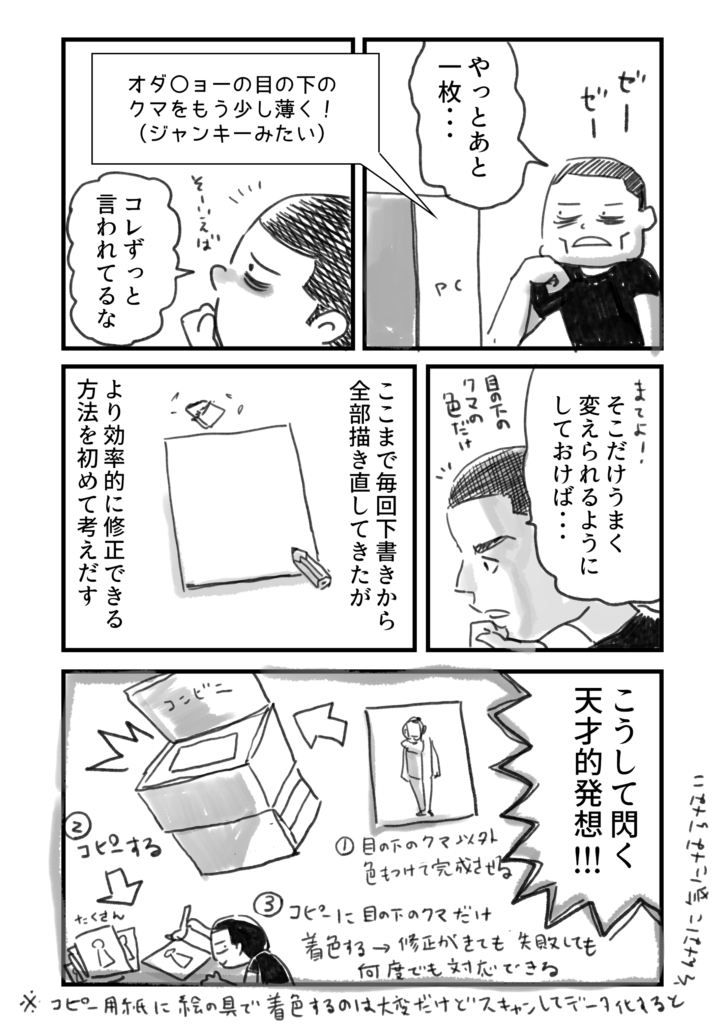 ゼー
ゼー
やっとあと
一枚・・・
PC
オダ〇ョーの目の下の
クマをもう少し薄く！
（ジャンキーみたい）
そーいえば
コレずっと
言われてるな
まてよ！
そこだけうまく
変えられるように
しておけば・・・
目の下の
クマの
色だけ
ここまで毎回下書きから
全部描き直してきたが
より効率的に修正できる
方法を初めて考えだす
こうして閃く
天才的発想!!!
①目の下のクマ以外
色もつけて完成させる
コンビニ
②
コピーする
たくさん
③コピーに目の下のクマだけ
着色する→修正がきても失敗しても
何度でも対応できる
※コピー用紙に絵の具で着色するのは大変だけどスキャンしてデータ化すると